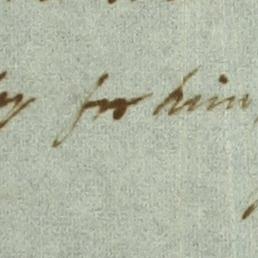 for him